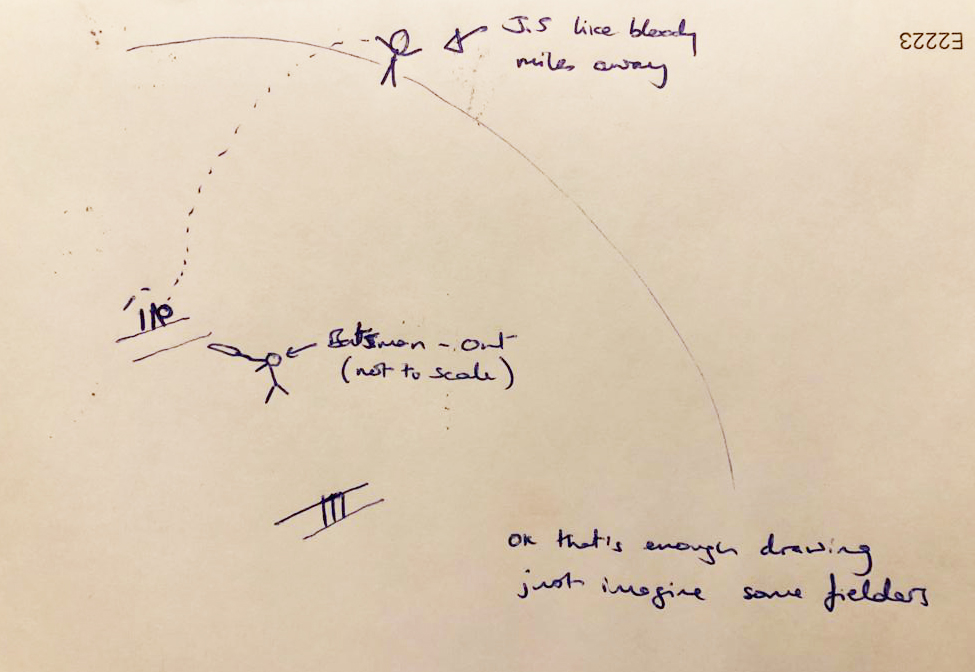 J.S like bloody
miles away
E2223
Batsman - out
(not to scale)
ok that's enough drawing
just imagine some fielders